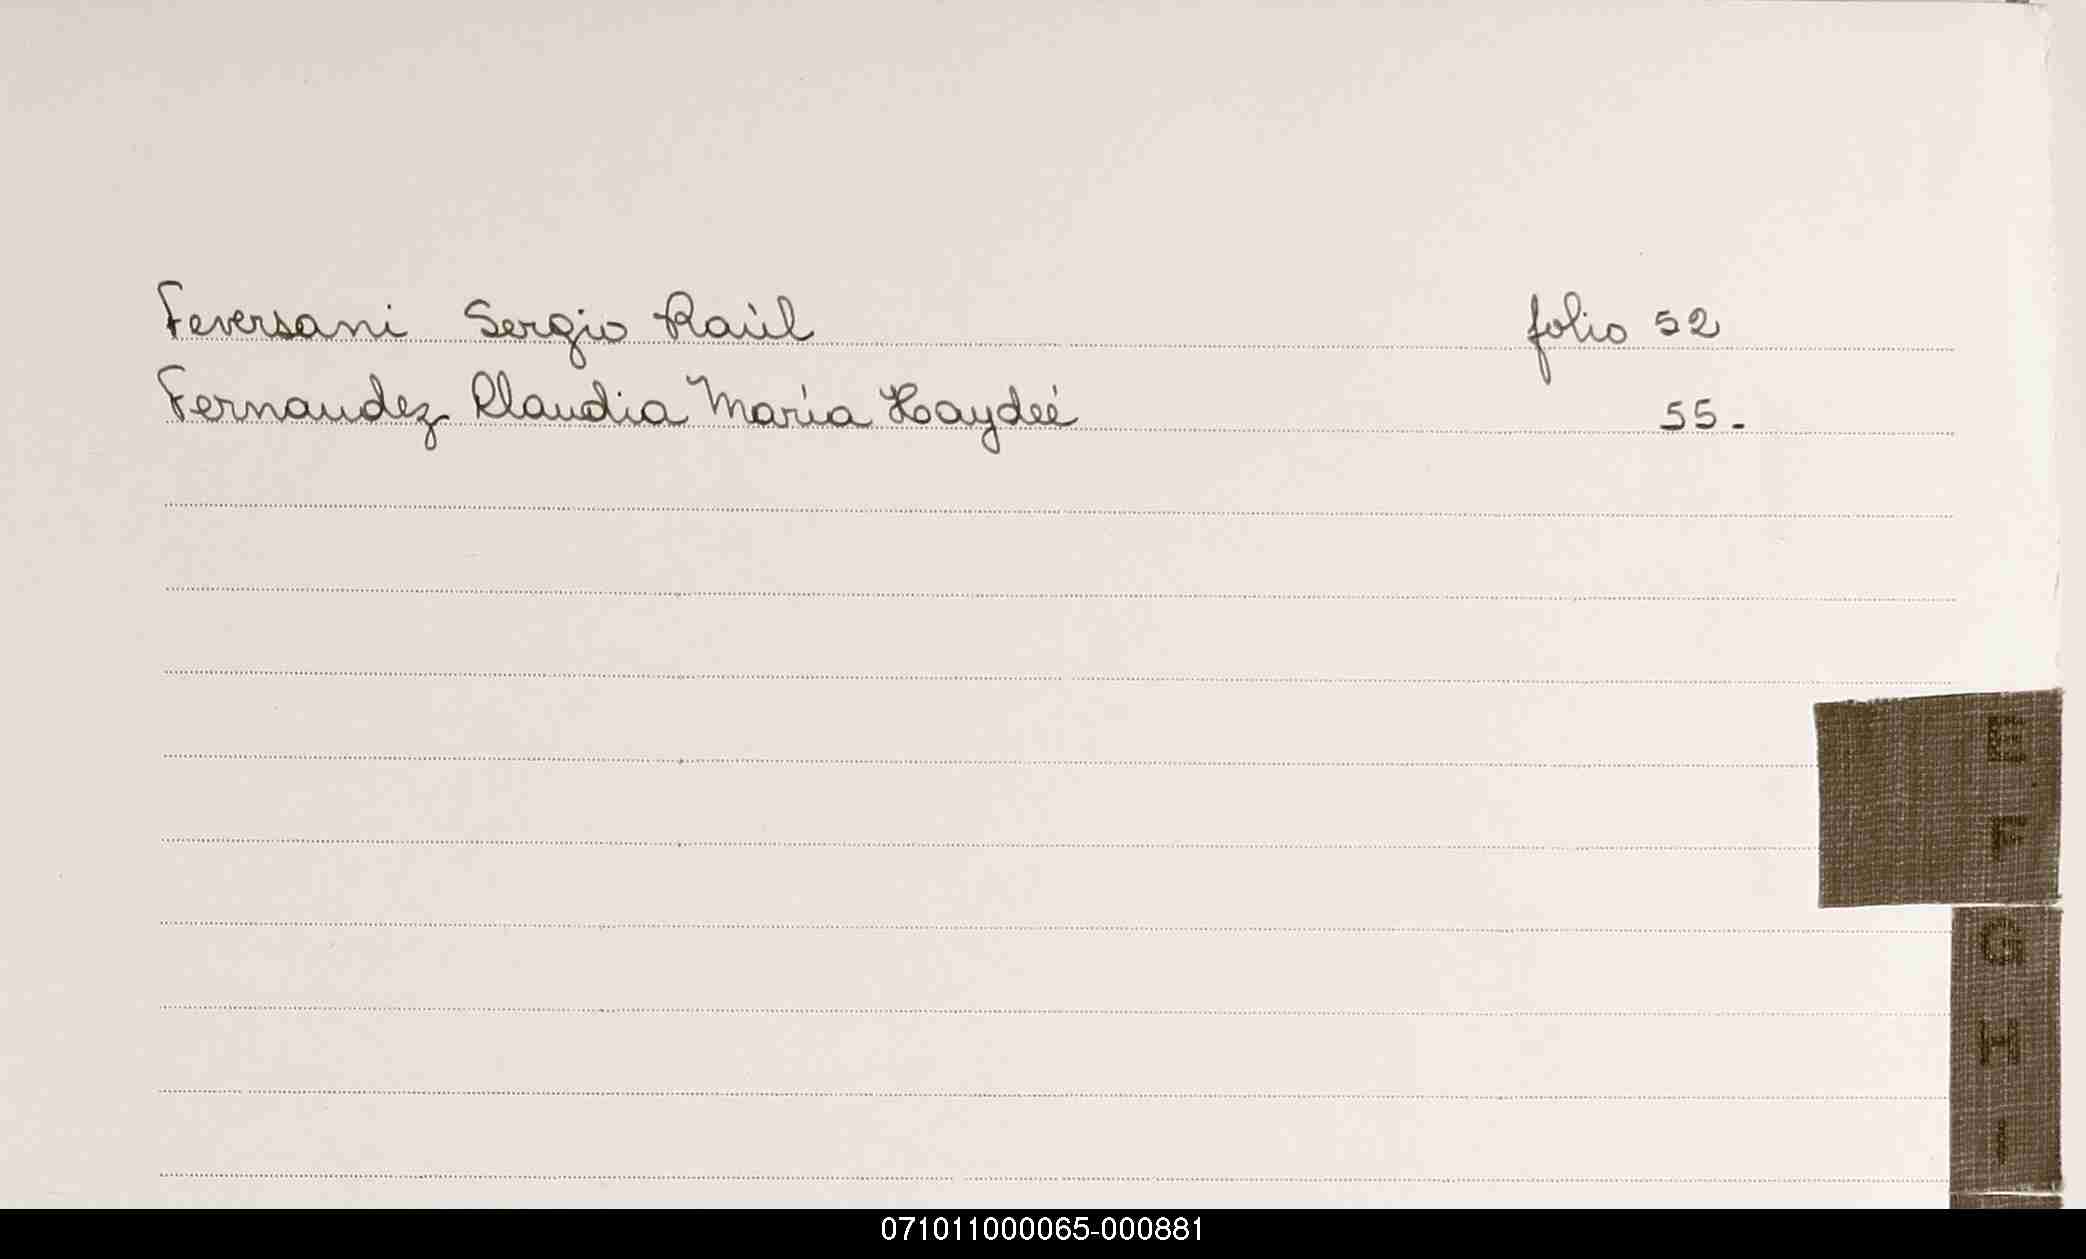 Feversani Sergio Raúl folio 52
Fernandez Claudia María Haydeé 55.-
E
F
G
H
I
071011000065-000881